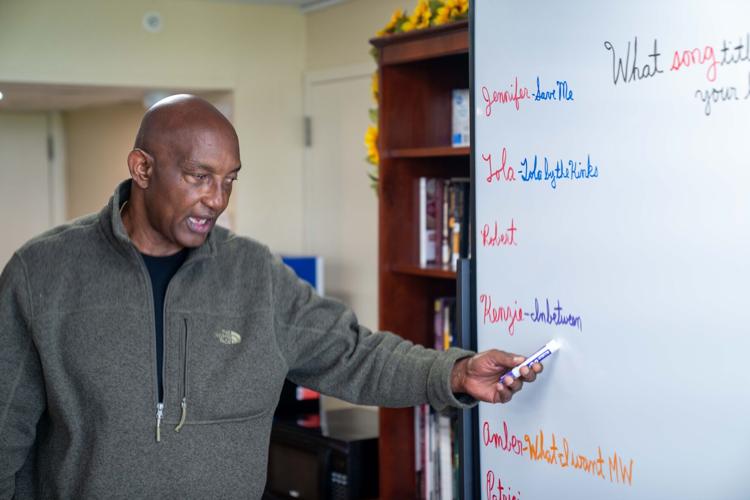 What song titl
your
Jennifer-Save Me
Lola-Lola by the Kinks
Robert
Kenzie-Inbetween
Amber-What I want MW
Patri
THE
NORTH
FACE